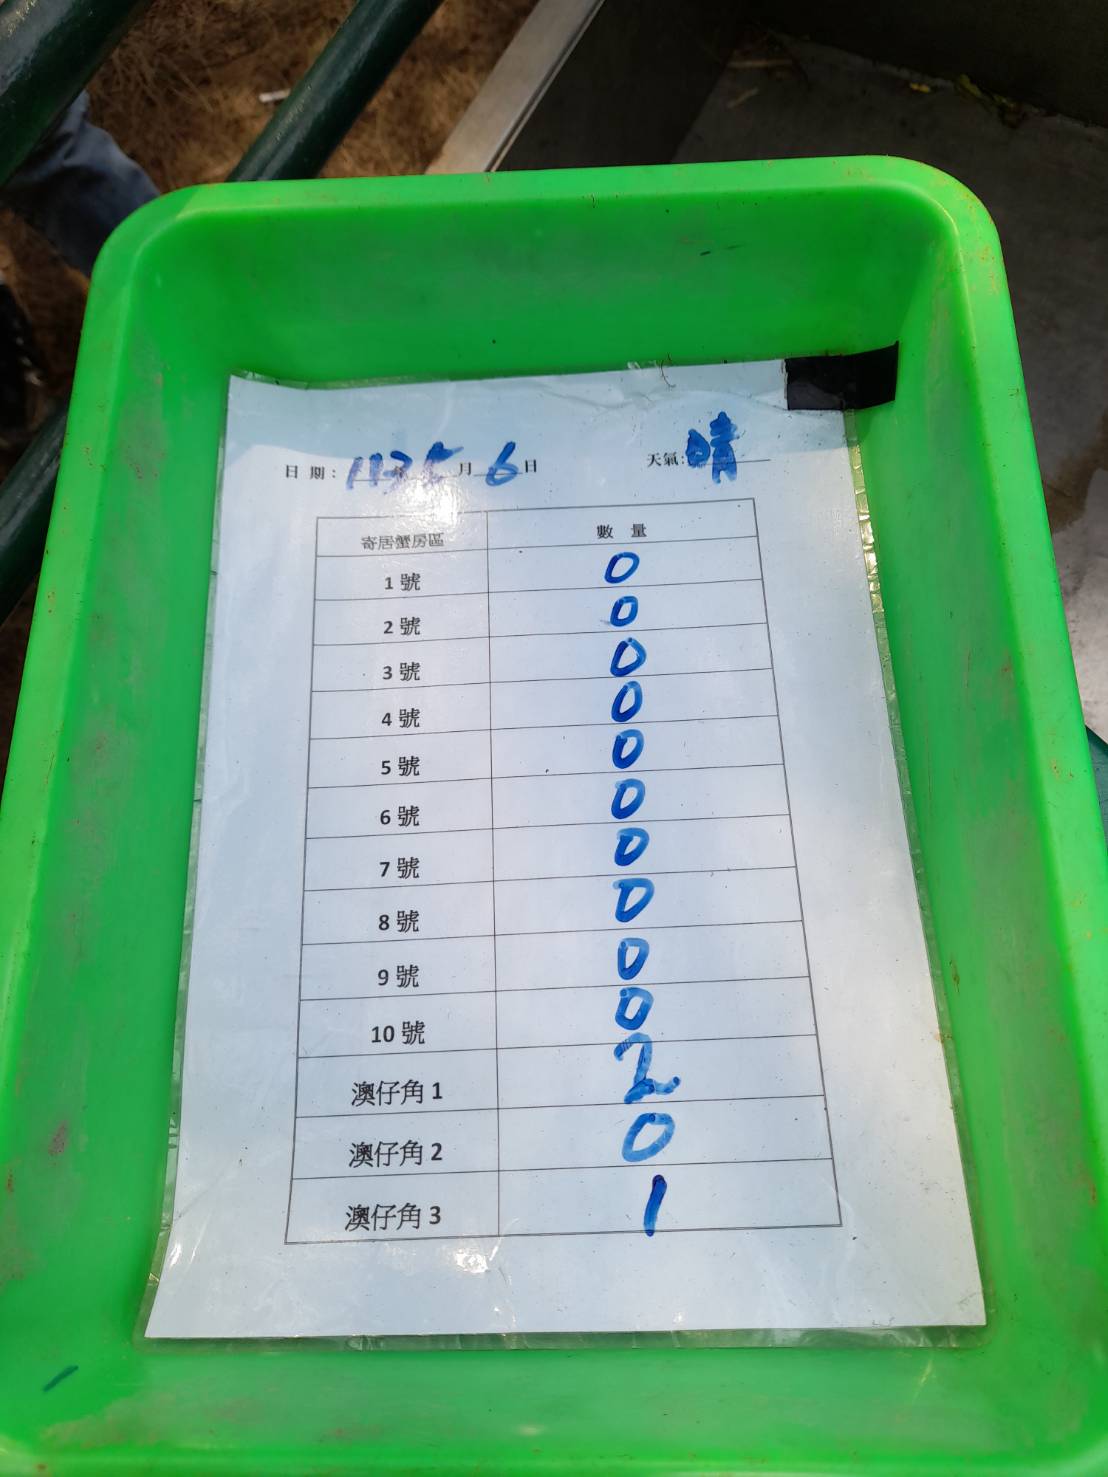 日 期：113年5月6日 天氣：晴
寄居蟹房區 數 量
1 號 0
2 號 0
3 號 0
4 號 0
5 號 0
6 號 0
7 號 0
8 號 0
9 號 0
10 號 0
澳仔角 1 2
澳仔角 2 0
澳仔角 3 1